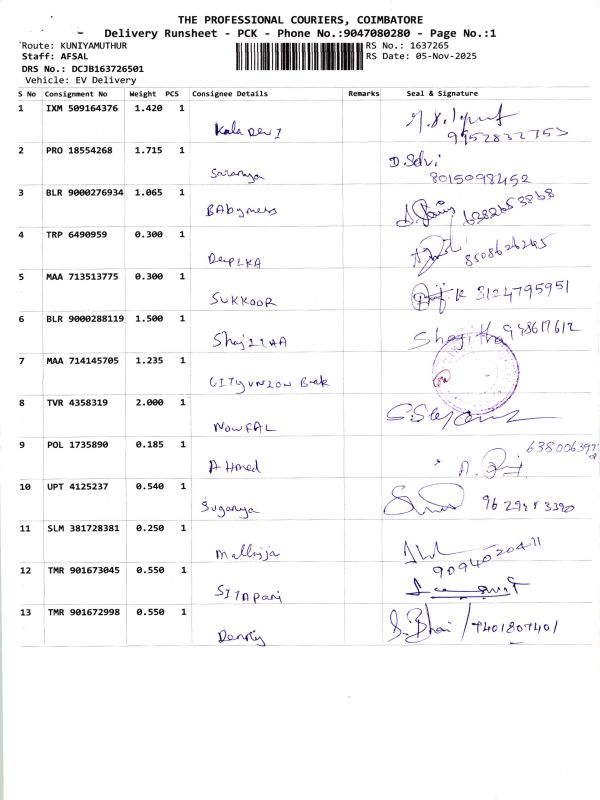 THE PROFESSIONAL COURIERS, COIMBATORE
Delivery Runsheet - PCK - Phone No.:9047080280 - Page No.:1
Route: KUNIYAMUTHUR RS No.: 1637265
Staff: AFSAL RS Date: 05-Nov-2025
DRS No.: DCJB163726501
Vehicle: EV Delivery
S No Consignment No Weight PCS Consignee Details Remarks Seal & Signature
1 IXM 509164376 1.420 1
Kala Devi 9952832753
2 PRO 18554268 1.715 1 D. Selvi
Saranya 8015098452
3 BLR 9000276934 1.065 1
BAbymess 6382653868
4 TRP 6490959 0.300 1
DeepIKA 8508626245
5 MAA 713513775 0.300 1
SUKKOOR K 8124795951
6 BLR 9000288119 1.500 1
ShajITHA Shajitha 948617612
7 MAA 714145705 1.235 1
CITY UNION Bank
8 TVR 4358319 2.000 1
NOWFAL
9 POL 1735890 0.185 1
AHmed A.
10 UPT 4125237 0.540 1
Suganya
11 SLM 381728381 0.250 1
Malliga 9094020411
12 TMR 901673045 0.550 1
13 TMR 901672998 0.550 1
S. Bhai / 7401807401